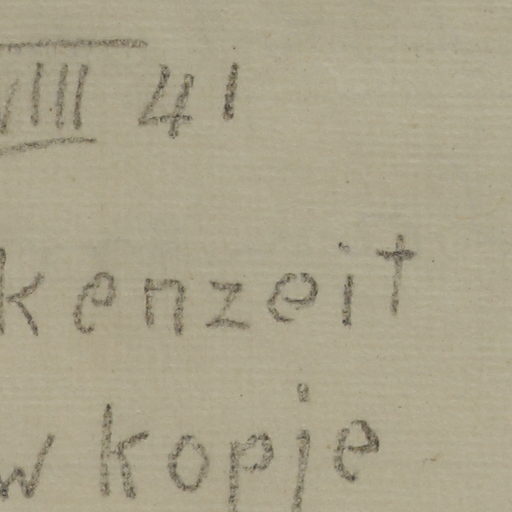 VIII 41
kenzeit
w kopje